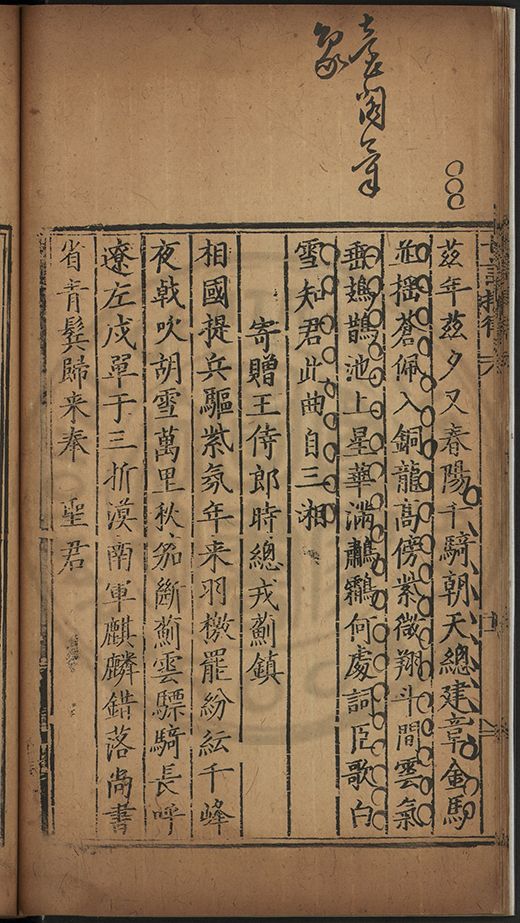 臺閣氣
象
茲年茲夕又春陽千騎朝天總建章金馬
並搖蒼佩入銅龍高傍紫微翔斗間雲氣
垂鳷鵲池上星華滿鷫鸘何處詞臣歌白
雪知君此曲自三湘
寄贈王侍郎時總戎薊鎮
相國提兵驅紫氛年来羽檄罷紛紜千峰
夜戟吹胡雪萬里秋笳斷薊雲驃騎長呼
遼左戍單于三折漠南軍麒麟錯落尚書
省青鬢歸来奉 聖君